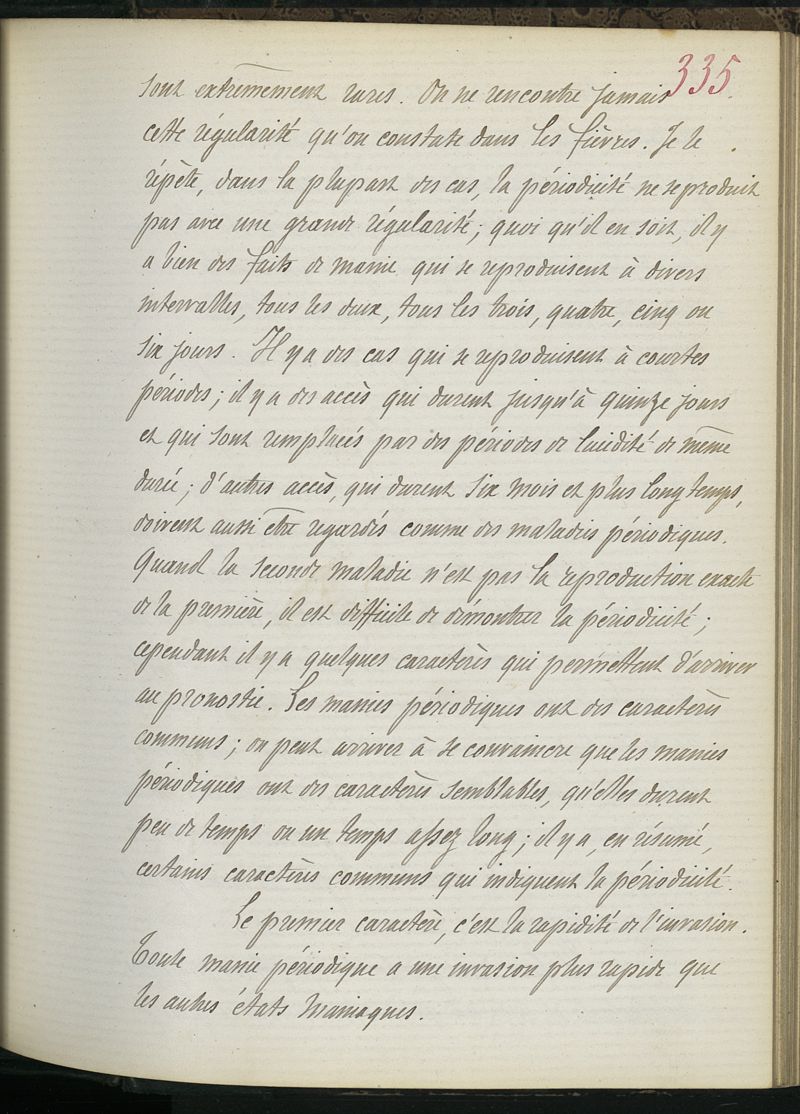 335.
sont extrêmement rares. On ne rencontre jamais
cette régularité qu'on constate dans les fièvres. Je le
répète, dans la plupart des cas, la périodicité ne se produit
pas avec une grande régularité; quoi qu'il en soit, il y
a bien des faits de manie qui se reproduisent à divers
intervalles, tous les deux, tous les trois, quatre, cinq ou
six jours. Il y a des cas qui se reproduisent à courtes
périodes; il y a des accès qui durent jusqu'à quinze jours
et qui sont remplacés par des périodes de lucidité de même
durée; d'autres accès, qui durent six mois et plus longtemps,
doivent aussi être regardés comme des maladies périodiques.
Quand la seconde maladie n'est pas la reproduction exacte
de la première, il est difficile de démontrer la périodicité;
cependant il y a quelques caractères qui permettent d'arriver
au pronostic. Les manies périodiques ont des caractères
communs; on peut arriver à se convaincre que les manies
périodiques ont des caractères semblables, qu'elles durent
peu de temps ou un temps assez long; il y a, en résumé,
certains caractères communs qui indiquent la périodicité.
Le premier caractère, c'est la rapidité de l'invasion.
Toute manie périodique a une invasion plus rapide que
les autres états maniaques.